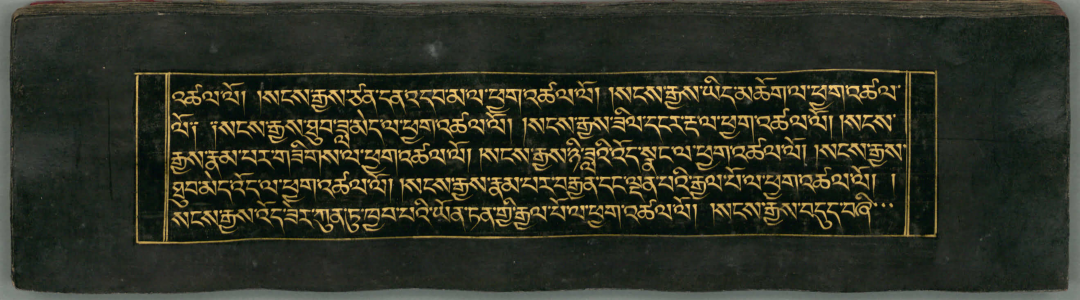 འཚལ་ལོ། །སངས་རྒྱས་ཙན་དན་འདབ་མ་ལ་ཕྱག་འཚལ་ལོ། །སངས་རྒྱས་ཡིད་མཆོག་ལ་ཕྱག་འཚལ་
ལོ༑ ༑སངས་རྒྱས་ཐུབ་ཟླ་མེད་ལ་ཕྱག་འཚལ་ལོ། །སངས་རྒྱས་ཟིལ་དངར་རྡལ་ཕྱག་འཚལ་ལོ། །སངས་
རྒྱས་རྣམ་པར་གཟིགས་ལ་ཕྱག་འཚལ་ལོ། །སངས་རྒྱས་ཉི་ཟླའི་འོད་སྣང་ལ་ཕྱག་འཚལ་ལོ། །སངས་རྒྱས་
ཐུབ་མང་འོད་ལ་ཕྱག་འཚལ་ལོ། །སངས་རྒྱས་རྣམ་པར་བརྒྱན་དང་ལྡན་པའི་རྒྱལ་པོ་ལ་ཕྱག་འཚལ་ལོ། །
སངས་རྒྱས་འོད་ཟེར་ཀུན་ཏུ་ཁྱབ་པའི་ཡོན་ཏན་གྱི་རྒྱལ་པོ་ལ་ཕྱག་འཚལ་ལོ། །སངས་རྒྱས་བདུད་བཞི་་་